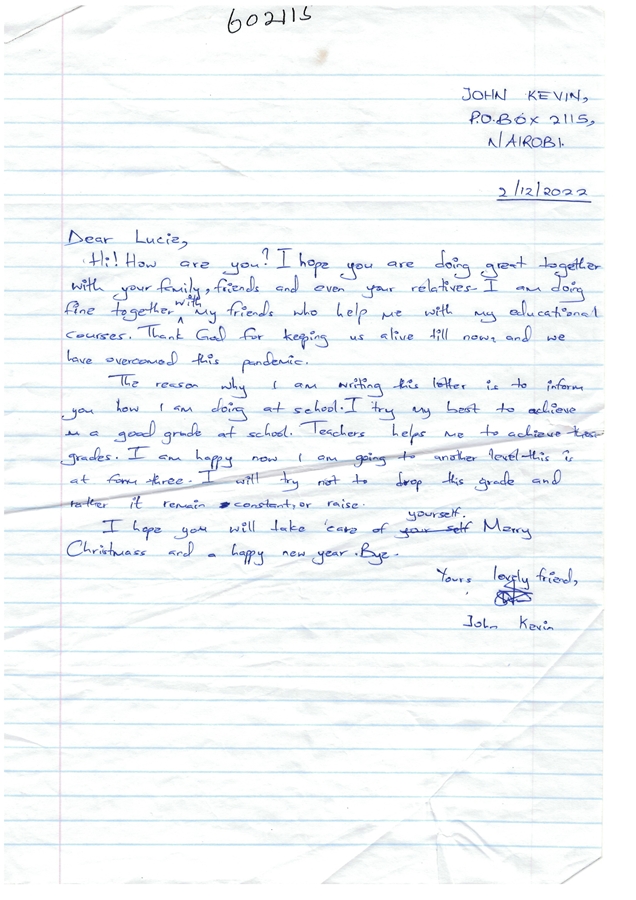 602115
JOHN KEVIN,
P.O.BOX 2115,
NAIROBI.
2/12/2022
Dear Lucie,
Hi! How are you? I hope you are doing great together
with your family, friends and even your relatives. I am doing
fine together with my friends who help me with my educational
courses. Thank God for keeping us alive till now, and we
have overcomed this pandemic.
The reason why I am writing this letter is to inform
you how I am doing at school. I try my best to achieve
a good grade at school. Teachers helps me to achieve
grades. I am happy now I am going to another level this is
at form three. I will try not to drop this grade and
rather it remain constant, or raise.
I hope you will take care of your self yourself. Merry
Christmass and a happy new year. Bye.
Yours lovely friend,
John Kevin